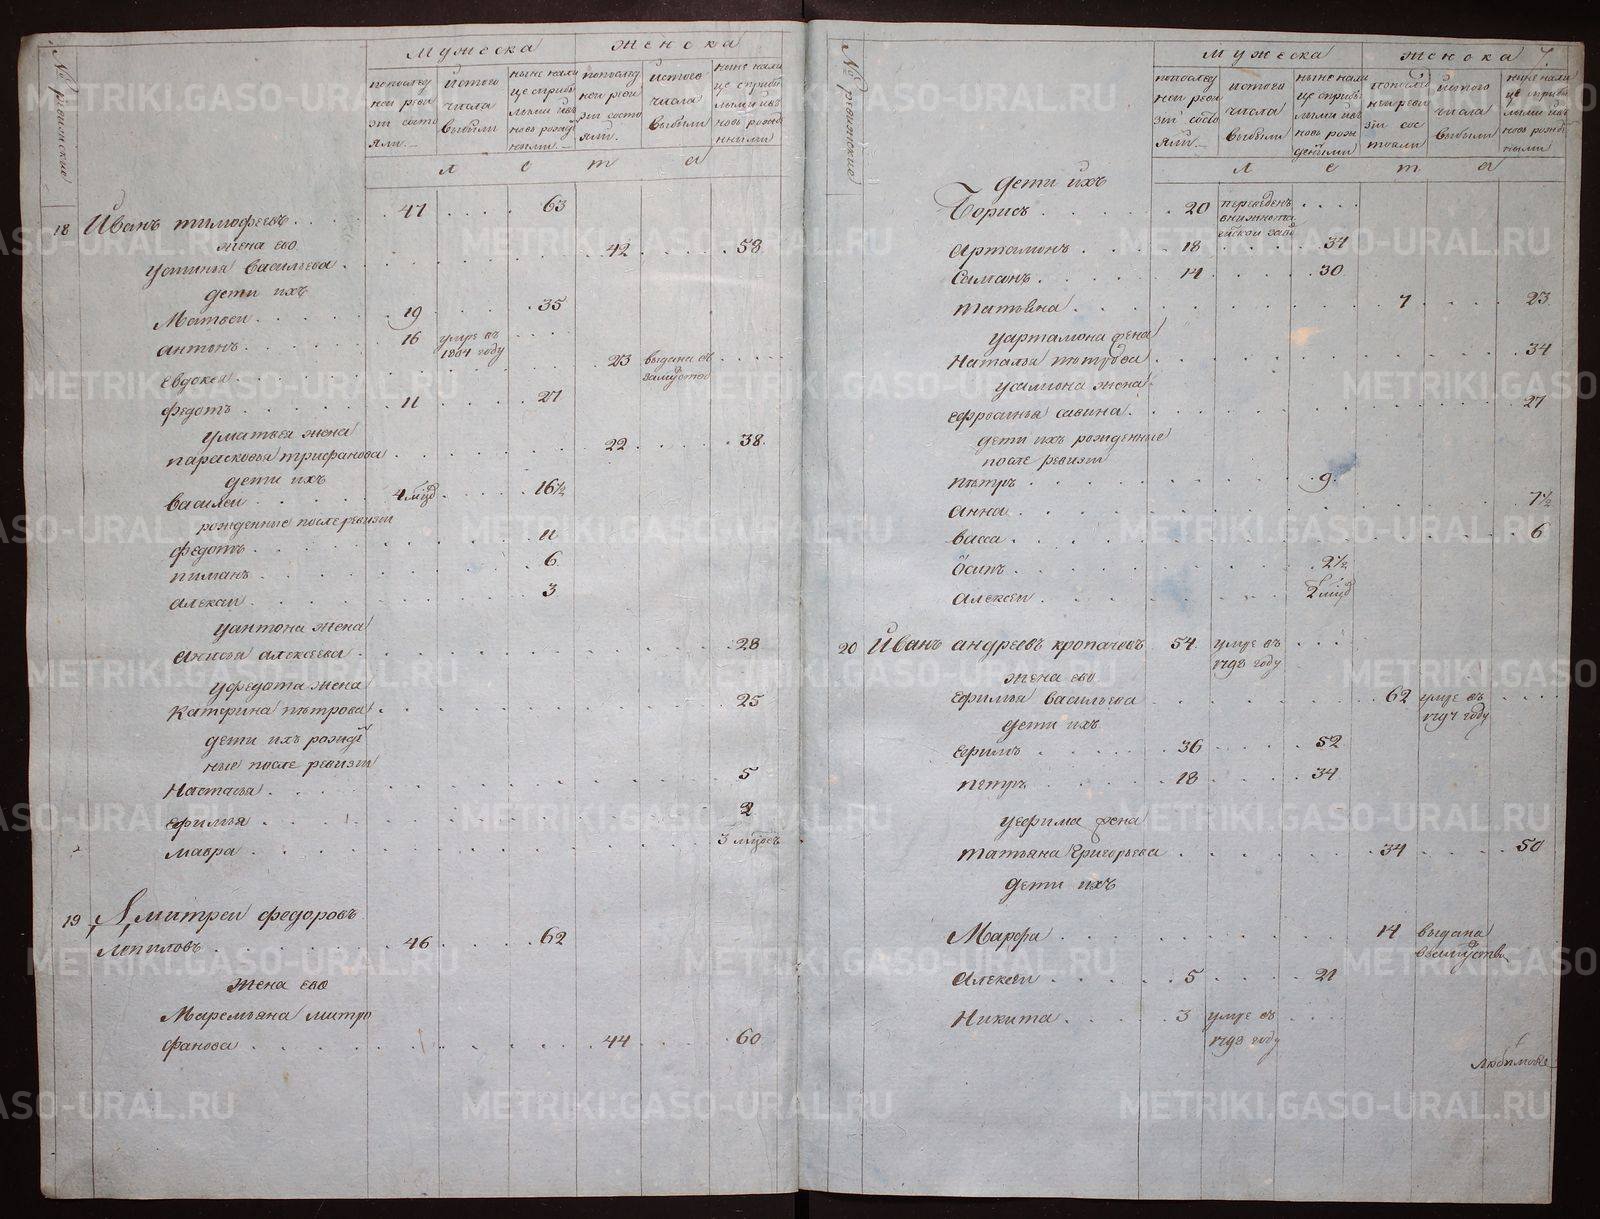 № ревижские
мужеска
женска
попослед
ней реви
зіи состо
яли.
ис того
числа
выбыли
ныне нали
це с прибы
лыми и в
новь рожд
ными.
попослед
ней реви
зіи состо
яли.
ис того
числа
выбыли
ныне нали
це с прибы
лыми и в
новь рожд
нными
л е т а
18 Иванъ тимофеевъ 47 63
жена ево
устинья васильева 42 58
дети ихъ
Матвеи 19 35
антонъ 16 умре въ 1804 году
Евдокея 23 выдана в замужство
федотъ 11 27
у матвея жена
парасковья трифанова 22 38
дети ихъ
василеи 4 мцд 16½
рожденные после ревизіи
федотъ 11
пиманъ 6
алексеи 3
у антона жена
анисья алексеева 28
у федота жена
катерина петрова 25
дети ихъ рожде
ные после ревизіи
Настасья 5
ефимья 2
мавра 3 мцовъ
19 Дмитреи федоровъ
Лопиловъ 46 62
жена ево
Маремьяна митро
фанова 44 60
№ ревижские
мужеска
женска 7.
попослед
ней реви
зіи состо
яли.
ис того
числа
выбыли
ныне нали
це с прибы
лыми и в
новь рож
денными
попослед
ней реви
зіи сос
тояли
ис того
числа
выбыли
ныне нали
це с прибы
лыми и в
новь рожд
ными
л е т а
дети ихъ
Борисъ 20 переведенъ в нижнета гильской завод
артамонъ 18 34
Симанъ 14 30
татьяна 7 23
у артамона жена
наталья петрова 34
у симона жена
ефросинья савина 27
дети ихъ рожденные
после ревизіи
петръ 9
анна 7½
васса 6
осипъ 2½
алексеи 2 мцд
20 Иванъ андреевъ кропачевъ 54 умре въ 1798 году
жена ево
ефимья васильева 62 умре въ 1797 году
дети ихъ
ефимъ 36 52
петръ 18 34
у ефима жена
татьяна григорьева 34 50
дети ихъ
Марфа 14 выдана в замужство
алексеи 5 21
Никита 3 умре въ 1798 году